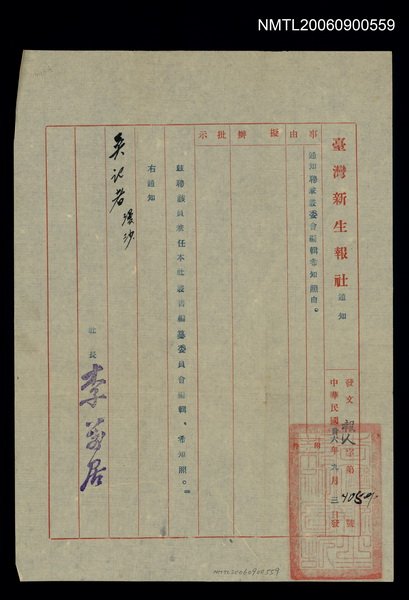 NMTL20060900559
臺灣新生報社 通知
發文 字第4059號
中華民國卅六年九月三日發
附件
事由
擬辦
批示
通知聘兼叢委會編輯希知照由。
茲聘該員兼任本社叢書編纂委員會編輯、希知照。
右通知
吳記者 瀛沙
社長 李萬居
NMTL20060900559